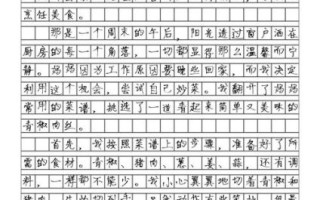 烹饪美食。
那是一个周末的午后，阳光透过窗户洒在
厨房的每一个角落，一切都显得那么温馨而宁
静。妈妈因为工作原因要晚些回家，而我决定
利用这个机会，尝试自己炒菜。我翻开了妈妈
常用的菜谱，挑选了一道看起来简单又美味的
青椒肉丝。
首先，我按照菜谱上的步骤，准备好了所
需的食材。青椒、猪肉、葱、姜、蒜，还有调
料，一样都不能少。我小心翼翼地切着青椒和